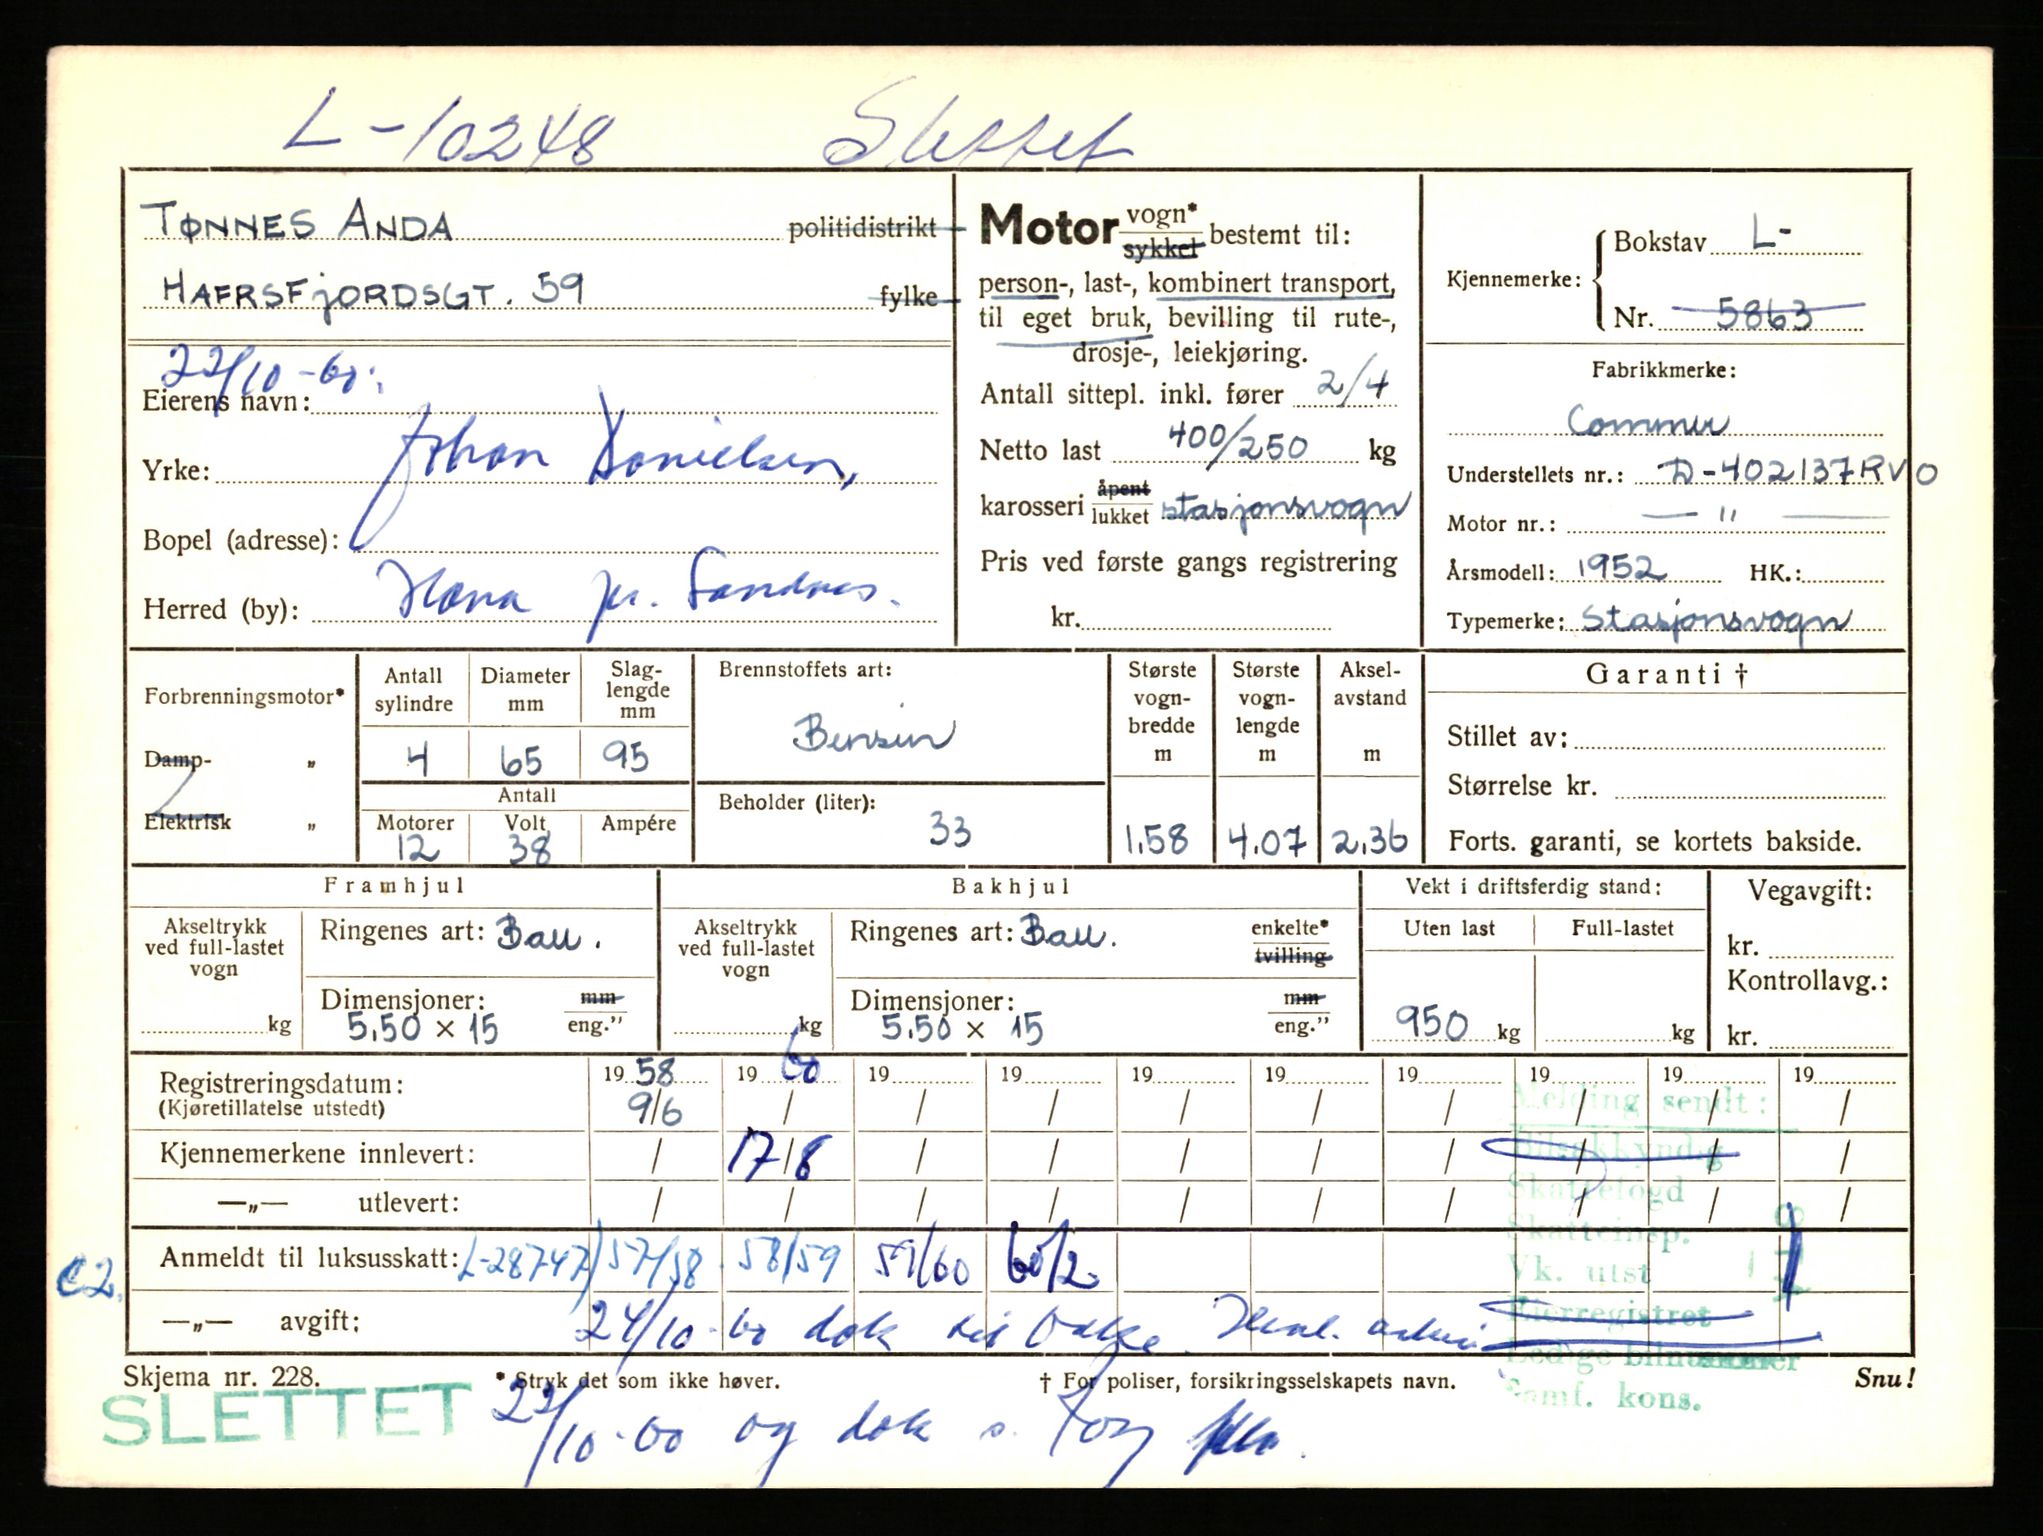 L-10248 Slettet
TØNNES ANDA politidistrikt
HAFRSFJORDSGT. 59 fylke
22/10-60:
Eierens navn:
Yrke: Johan Danielsen,
Bopel (adresse):
Herred (by): Hana pr. Sandnes.
Motor vogn* sykkel bestemt til:
person-, last-, kombinert transport,
til eget bruk, bevilling til rute-,
drosje-, leiekjøring.
Antall sittepl. inkl. fører 2/4
Netto last 400/250 kg
karosseri åpent lukket stasjonsvogn
Pris ved første gangs registrering
kr.
Kjennemerke: Bokstav L-
Nr. 5863
Fabrikkmerke:
Commer
Understellets nr.: D-402137RVO
Motor nr.: — " —
Årsmodell: 1952 HK.:
Typemerke: Stasjonsvogn
Forbrenningsmotor*
Damp- „
Elektrisk „
Antall sylindre Diameter mm Slag-lengde mm
4 65 95
Antall
Motorer Volt Ampére
12 38
Brennstoffets art:
Bensin
Beholder (liter):
33
Største vogn-bredde m Største vogn-lengde m Aksel-avstand m
1.58 4.07 2.36
Garanti †
Stillet av:
Størrelse kr.
Forts. garanti, se kortets bakside.
Framhjul
Akseltrykk ved full-lastet vogn
kg
Ringenes art: Ball.
Dimensjoner: mm eng."
5.50 × 15
Bakhjul
Akseltrykk ved full-lastet vogn
kg
Ringenes art: Ball. enkelte* tvilling
Dimensjoner: mm eng."
5.50 × 15
Vekt i driftsferdig stand:
Uten last Full-lastet
950 kg kg
Vegavgift:
kr.
Kontrollavg.:
kr.
Registreringsdatum: 19 58 19 60 19 19 19 19 19 19 19 19
(Kjøretillatelse utstedt) 9/6 / / / / / / / / /
Kjennemerkene innlevert: / 17/8 / / / / / / / /
—„— utlevert: / / / / / / / / / /
Anmeldt til luksusskatt: L-28747) 57/58 58/59 59/60 60/2
C2.
—„— avgift: 24/10-60 dok til
Melding sendt:
Bilsakkyndig
Skattefogd
Skatteinsp.
Vk. utst
Eierregistret
Ledige bilnummer
Samf. kons.
Skjema nr. 228. * Stryk det som ikke høver. † For poliser, forsikringsselskapets navn. Snu!
SLETTET 22/10-60 og dok s.